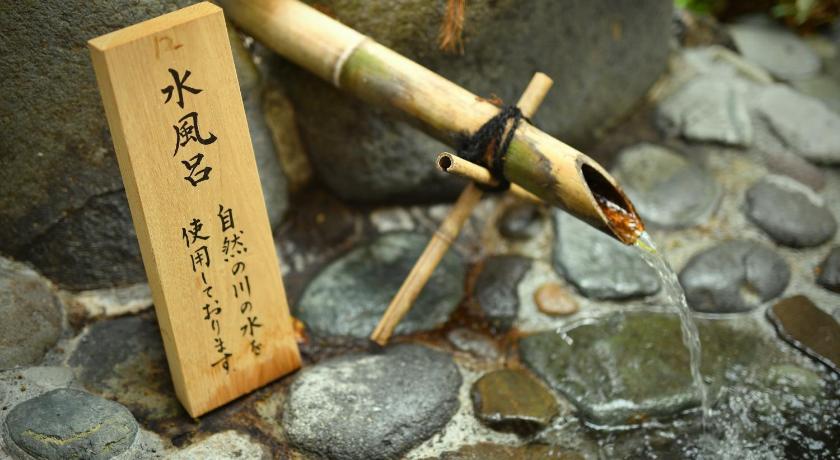 水風呂
自然の川の水を
使用しております